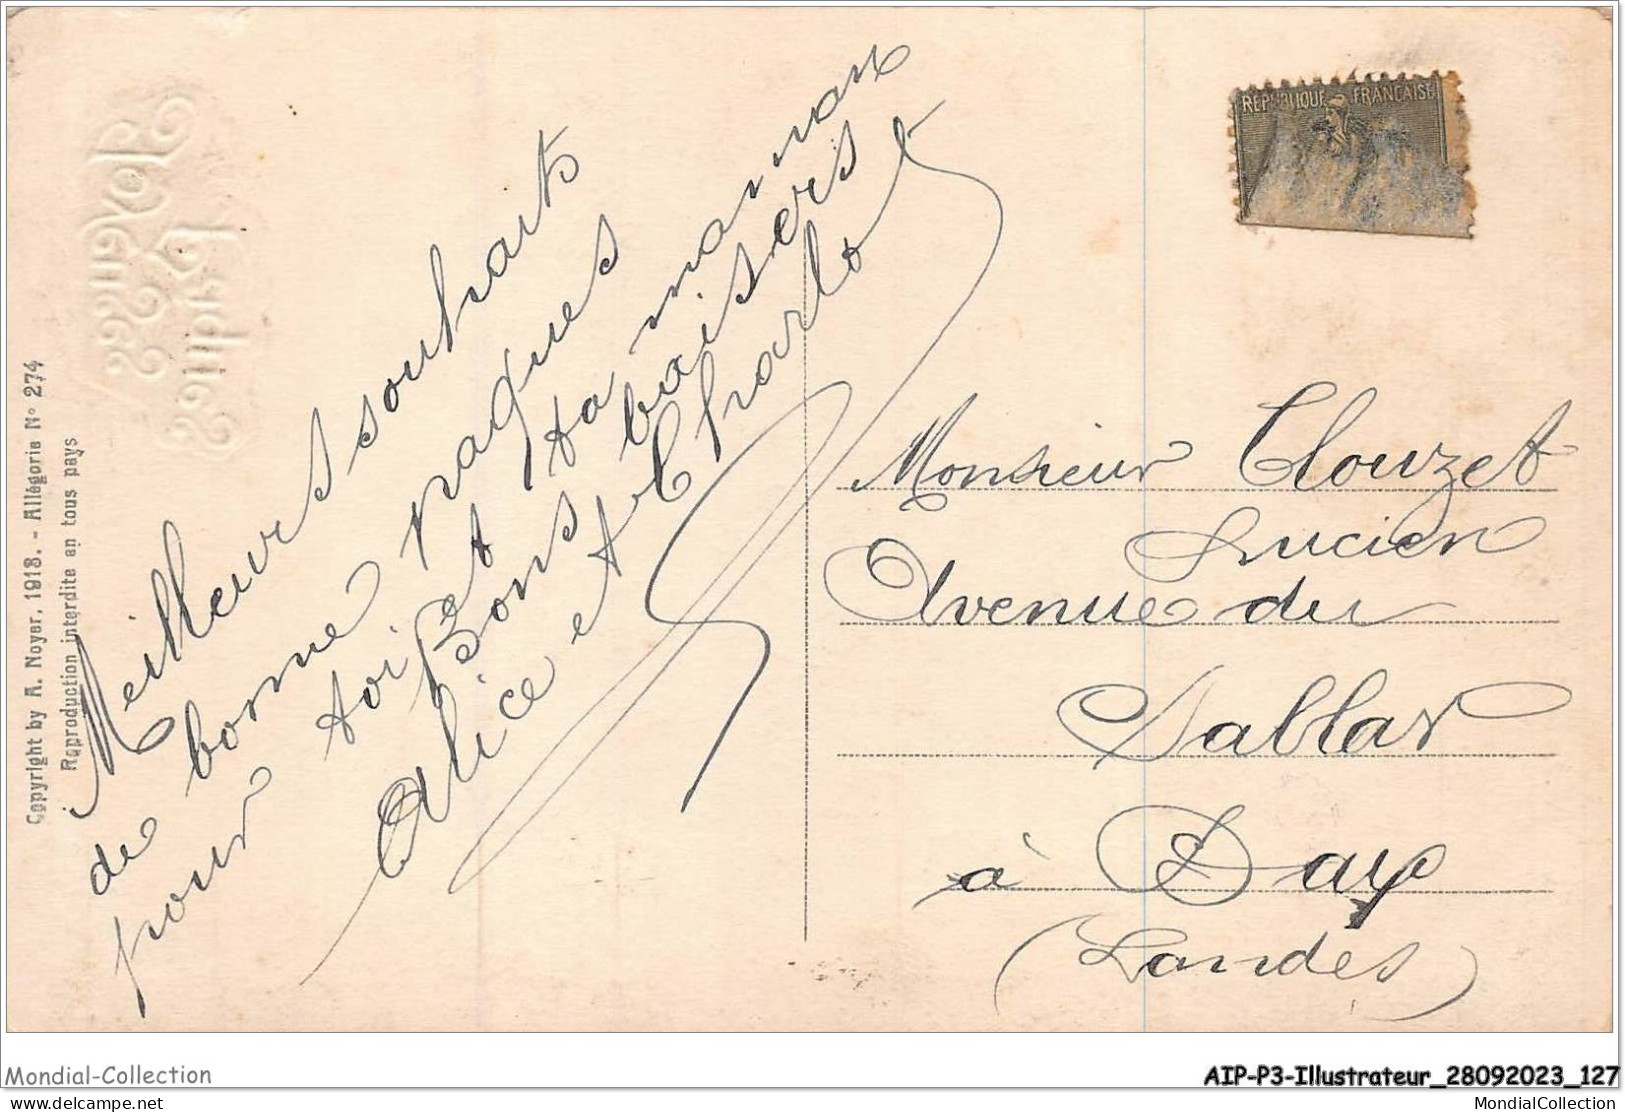 Copyright by A. Noyer, 1918. - Allégorie N° 274
Reproduction interdite en tous pays
Meilleurs souhaits
de bonne paques
pour toi et ta maman
Bons baisers
Alice et Charlot
REPUBLIQUE FRANCAISE
Monsieur Clouzet
Lucien
Avenue du
Sablar
à Dax
(Landes)
Mondial-Collection
AIP-P3-Illustrateur_28092023_127
delcampe.net
MondialCollection